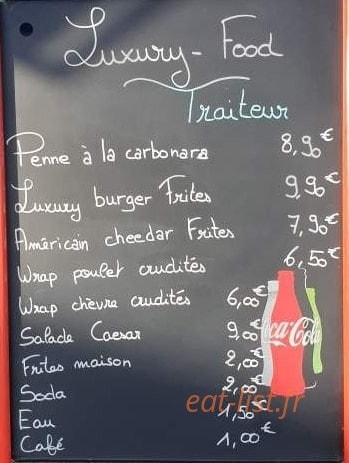 Luxury - Food
Traiteur
Penne à la carbonara 8,90€
Luxury burger Frites 9,90€
Américain cheedar Frites 7,90€
Wrap poulet crudités 6,50€
Wrap chèvre crudités 6,00€
Salade Caesar 9,00€
Frites maison 2,00€
Soda 2,00€
Eau 1,50€
Café 1,00€
Coca-Cola
eat-list.fr